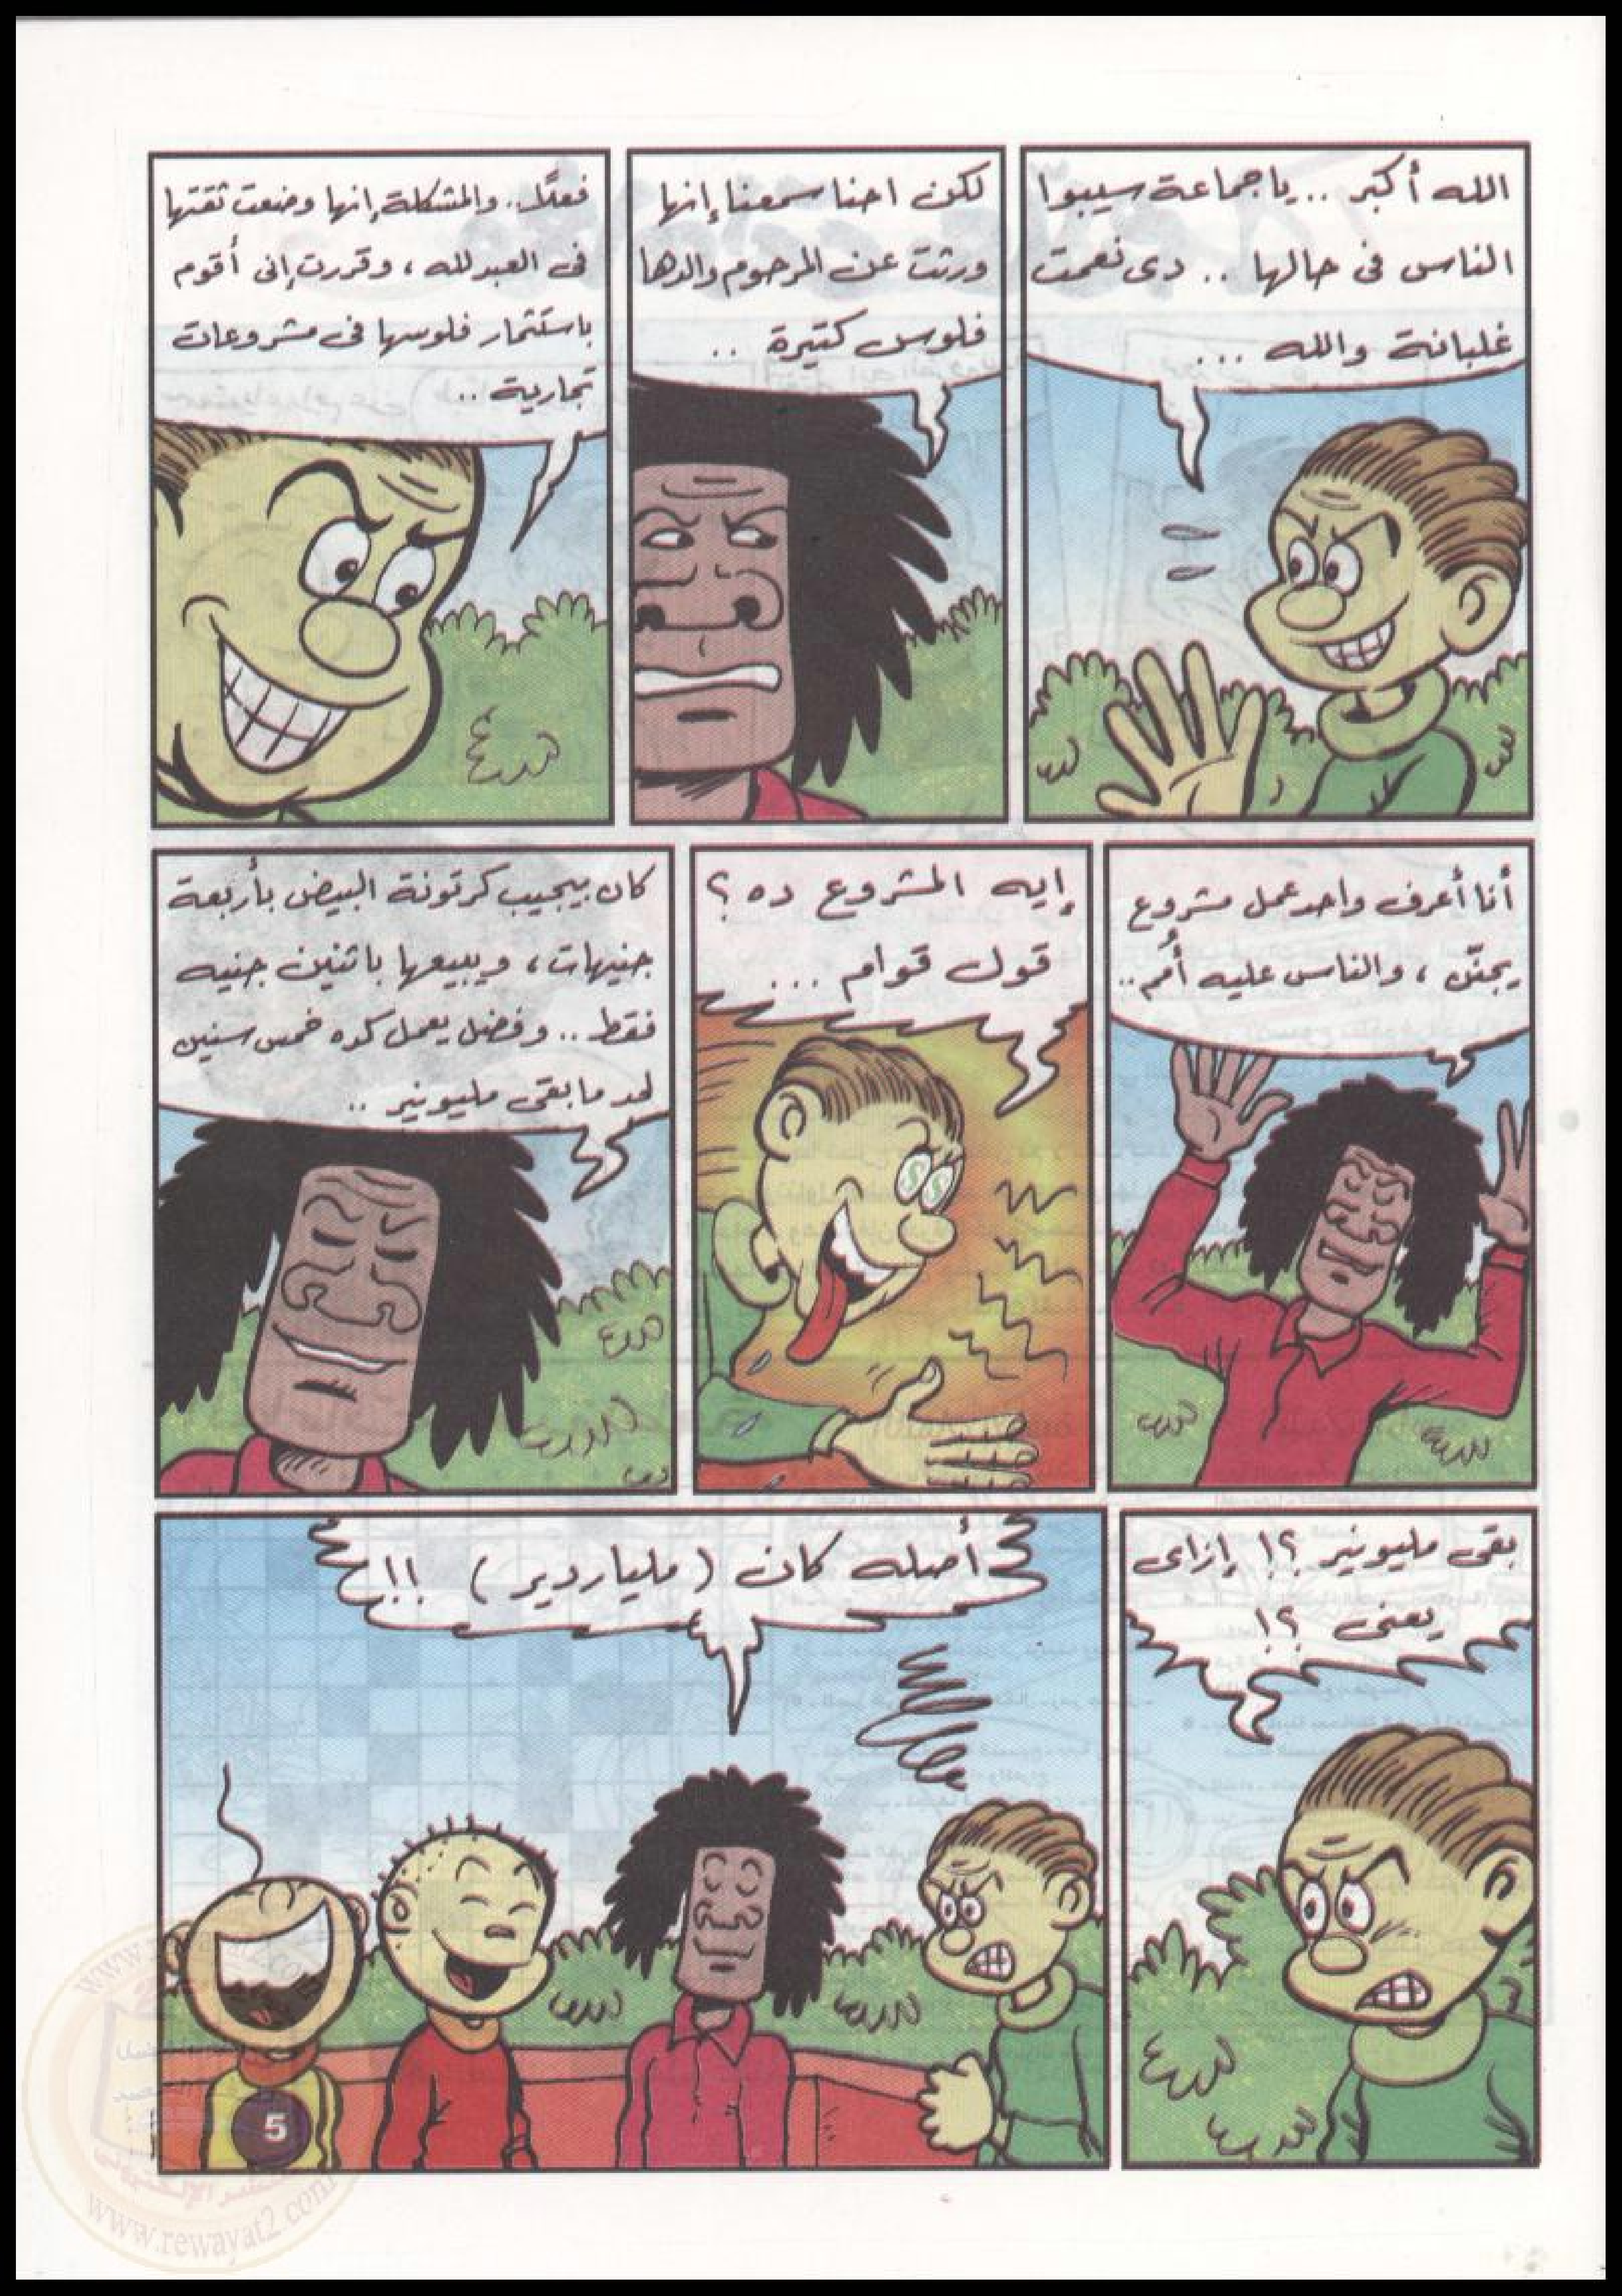 الله أكبر .. يا جماعة سيبوا
الناس فى حالها .. دى نعمت
غلبانة والله ...
لكن احنا سمعنا إنها
ورثت عن المرحوم والدها
فلوس كتيرة ..
فعلًا.. والمشكلة إنها وضعت ثقتها
فى العبد لله ، وقررت إنى أقوم
باستثمار فلوسها فى مشروعات
تجارية ..
أنا أعرف واحد عمل مشروع
يجنّن ، والناس عليه أمم ..
إيه المشروع ده ؟
قول قوام ...
كان بيجيب كرتونة البيض بأربعة
جنيهات ، ويبيعها باثنين جنيه
فقط .. وفضل يعمل كده خمس سنين
لحد ما بقى مليونير ..
بقى مليونير ؟! إزاى
يعنى ؟!
أصله كان ( ملياردير ) !!
5
www.rewayat2.com